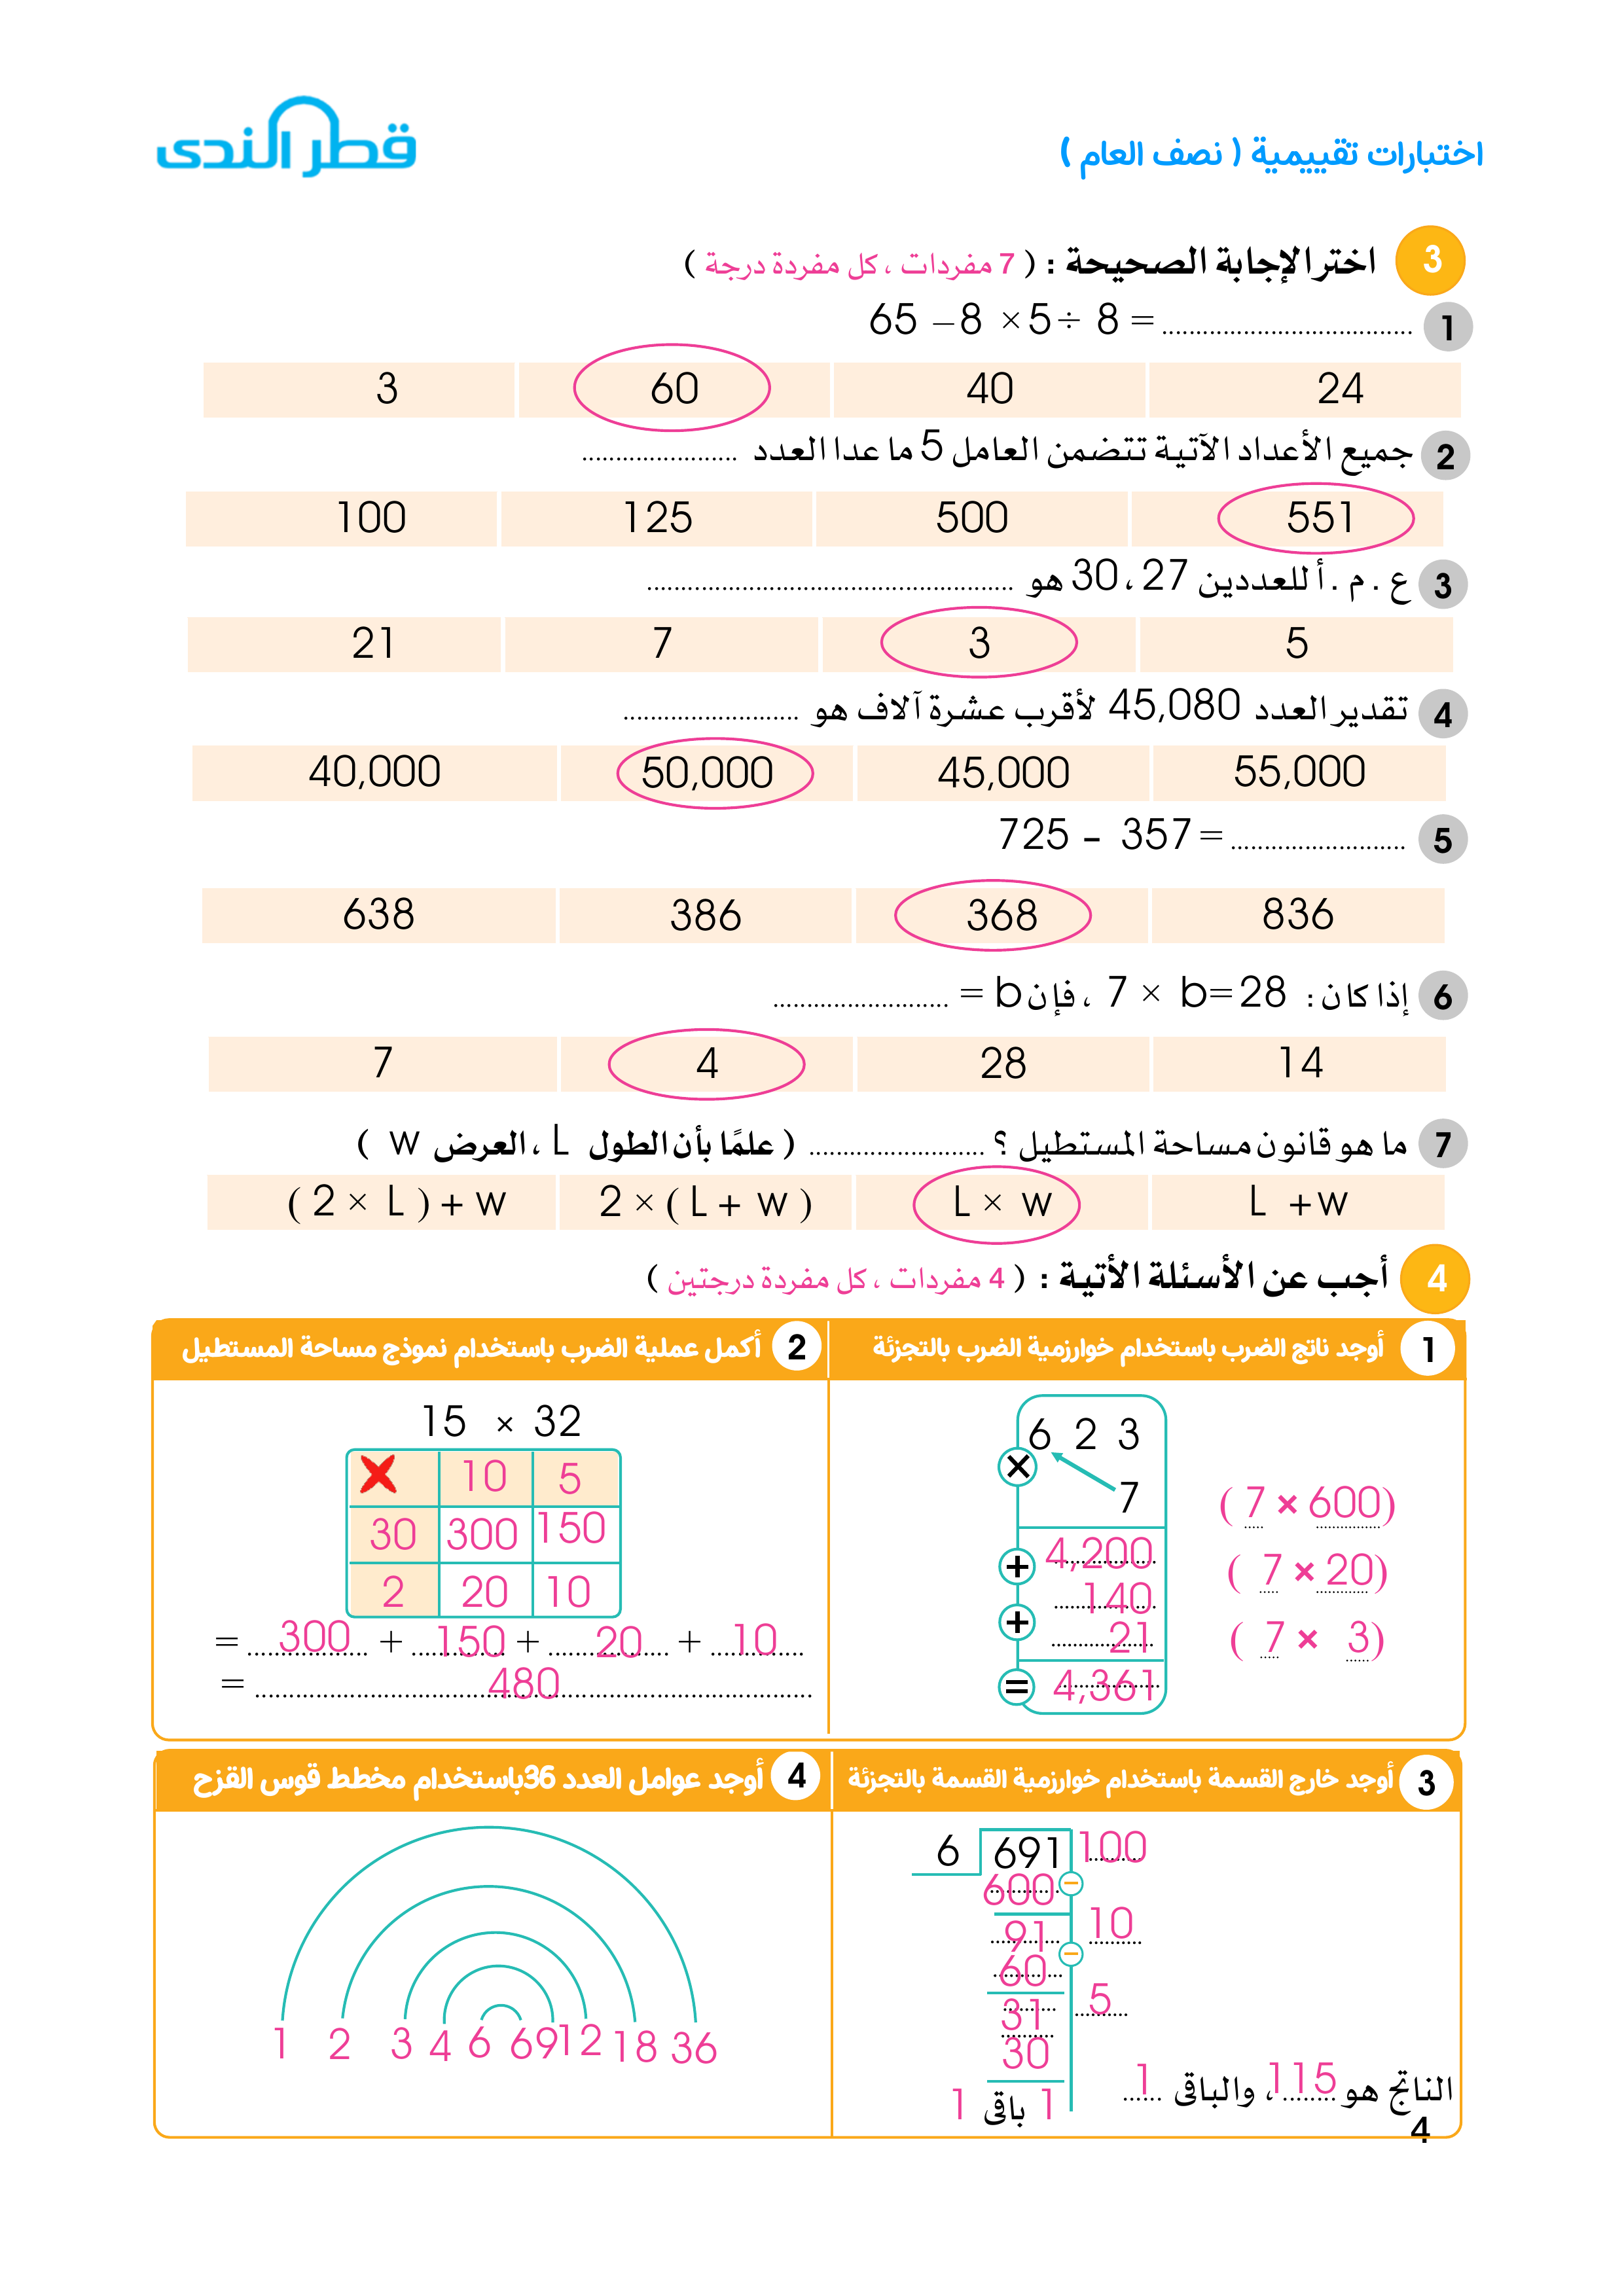 قطر الندى
اختبارات تقييمية ( نصف العام )
3 اختر الإجابة الصحيحة : ( 7 مفردات ، كل مفردة درجة )
1 65 – 8 × 5 ÷ 8 = ....................
3 60 40 24
2 جميع الأعداد الآتية تتضمن العامل 5 ما عدا العدد ....................
100 125 500 551
3 ع . م . أ للعددين 27 ، 30 هو ....................
21 7 3 5
4 تقدير العدد 45,080 لأقرب عشرة آلاف هو ....................
40,000 50,000 45,000 55,000
5 725 - 357 = ....................
638 386 368 836
6 إذا كان : 7 × b=28 ، فإن b = ....................
7 4 28 14
7 ما هو قانون مساحة المستطيل ؟ .................... ( علمًا بأن الطول L ، العرض w )
( 2 × L ) + w 2 × ( L + w ) L × w L + w
4 أجب عن الأسئلة الأتية : ( 4 مفردات ، كل مفردة درجتين )
1 أوجد ناتج الضرب باستخدام خوارزمية الضرب بالتجزئة
6 2 3
× 7
+ 4,200 ( 7 × 600)
+ 140 ( 7 × 20)
21 ( 7 × 3)
= 4,361
2 أكمل عملية الضرب باستخدام نموذج مساحة المستطيل
15 × 32
× 10 5
30 300 150
2 20 10
= 300 + 150 + 20 + 10
= 480
3 أوجد خارج القسمة باستخدام خوارزمية القسمة بالتجزئة
6 691 100
600 –
91 10
60 –
31 5
30
1 باقى 1
الناتج هو 115 ، والباقى 1
4 أوجد عوامل العدد 36باستخدام مخطط قوس القزح
1 2 3 4 6 6 9 12 18 36
4